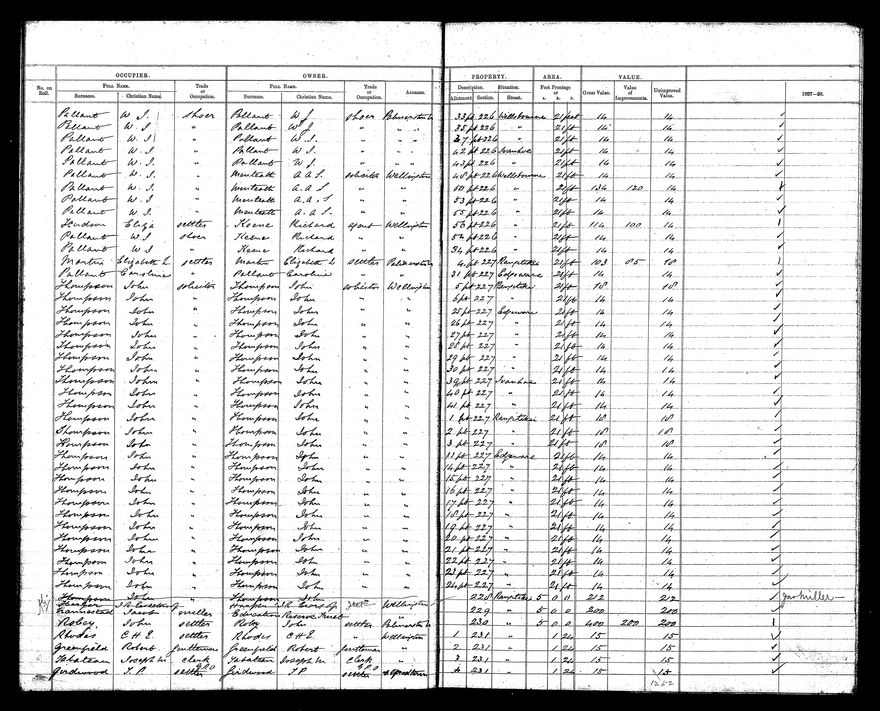 OCCUPIER. OWNER. PROPERTY. AREA. VALUE.
No. on Roll. FULL NAME. Trade or Occupation. FULL NAME. Trade or Occupation. ADDRESS. Description. Situation. Feet Frontage or Gross Value. Value of Improvements. Unimproved Value. 1897-98.
Surname. Christian Name. Surname. Christian Name. Allotment. Section. Street. A. R. P.
Pallant W. J. Pallant W J 33 pt 226 21 feet 14 14
Pallant W. J. " Pallant W J " " " 35 pt 226 " 21 ft 14 14
Pallant W J " Pallant W. J. " " " 37 pt 226 " 21 ft 14 14
Pallant W. J. " Pallant W J " " " 42 pt 226 Ivanhoe 21 ft 14 14
Pallant W. J. " Pallant W J " " " 43 pt 226 " 21 ft 14 14
Pallant W. J. " Monteath A A S solicitor Wellington 48 pt 226 21 ft 14 14
Pallant W. J. " Monteath A. A S " " 50 pt 226 " 21 ft 134 120 14
Pallant W. J. " Monteath A. A. S " " 53 pt 226 " 21 ft 14 14
Pallant W. J. " Monteath A. A S. " " 55 pt 226 " 21 ft 14 14
Hudson Eliza settler Keene Richard agent Wellington 56 pt 226 " 21 ft 114 100 14
Pallant W J Keene Richard " " 52 pt 226 " 21 ft 14 14
Pallant W J " Keene Richard " " 54 pt 226 " 21 ft 14 14
Martin Elizabeth L settler Martin Elizabeth L settler 4 pt 227 Rangitikei 21 ft 103 85 18
Pallant Caroline " Pallant Caroline " " 31 pt 227 Edgeware 21 ft 14 14
Thompson John solicitor Thompson John solicitor Wellington 5 pt 227 Rangitikei 21 ft 18 18
Thompson John " Thompson John " " 6 pt 227 21 ft 14 14
Thompson John " Thompson John " " 25 pt 227 Edgeware 21 ft 14 14
Thompson John " Thompson John " " 26 pt 227 " 21 ft 14 14
Thompson John " Thompson John " " 27 pt 227 " 21 ft 14 14
Thompson John " Thompson John " " 28 pt 227 " 21 ft 14 14
Thompson John " Thompson John " " 29 pt 227 " 21 ft 14 14
Thompson John " Thompson John " " 30 pt 227 " 21 ft 14 14
Thompson John " Thompson John " " 39 pt 227 Ivanhoe 21 ft 14 14
Thompson John " Thompson John " " 40 pt 227 " 21 ft 14 14
Thompson John " Thompson John " " 41 pt 227 " 21 ft 14 14
Thompson John " Thompson John " " 1 pt 227 Rangitikei 21 ft 18 18
Thompson John " Thompson John " " 2 pt 227 " 21 ft 18 18
Thompson John " Thompson John " " 3 pt 227 " 21 ft 18 18
Thompson John " Thompson John " " 11 pt 227 Edgeware 21 ft 14 14
Thompson John " Thompson John " " 14 pt 227 " 21 ft 14 14
Thompson John " Thompson John " " 15 pt 227 " 21 ft 14 14
Thompson John " Thompson John " " 16 pt 227 " 21 ft 14 14
Thompson John " Thompson John " " 17 pt 227 " 21 ft 14 14
Thompson John " Thompson John " " 18 pt 227 " 21 ft 14 14
Thompson John " Thompson John " " 19 pt 227 " 21 ft 14 14
Thompson John " Thompson John " " 20 pt 227 " 21 ft 14 14
Thompson John " Thompson John " " 21 pt 227 " 21 ft 14 14
Thompson John " Thompson John " " 22 pt 227 " 21 ft 14 14
Thompson John " Thompson John " " 23 pt 227 " 21 ft 14 14
Thompson John " Thompson John " " 24 pt 227 " 21 ft 14 14
Thompson John Thompson John
Harper Harper Wellington 228 Rangitikei 5 0 0 212 212 Miller
Jacob miller Education Reserve Trust " 229 " 5 0 0 200 200
Robey John settler Roby John settler 230 " 5 0 0 400 200 200
Rhodes C H E. settler Rhodes C H E. " Wellington 1 231 1 24 15 15
Greenfield Robert gentleman Greenfield Robert gentleman " 2 231 " 1 24 15 15
Tabateau Joseph clerk G.P.O Tabateau Joseph clerk G.P.O " 3 231 " 1 24 15 15
Girdwood J. P. settler Girdwood J P settler 4 231 " 1 24 15 15
1252